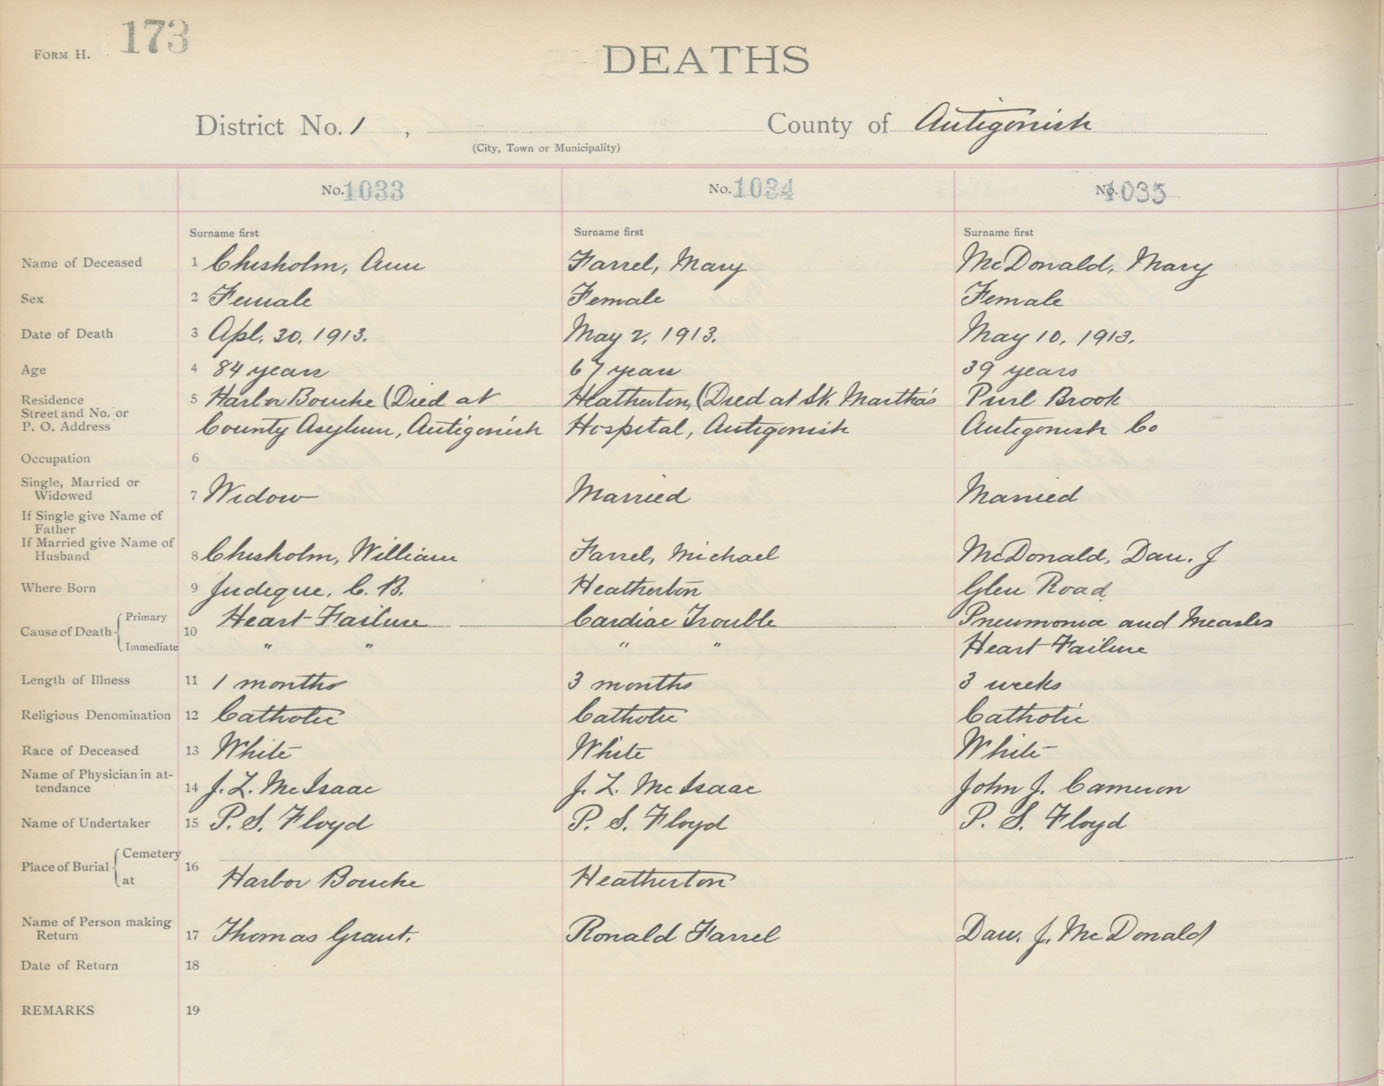 FORM H. 173
DEATHS
District No. 1 , County of Antigonish
(City, Town or Municipality)
No. 1033 No. 1034 No. 1035
Surname first Surname first Surname first
Name of Deceased 1 Chisholm, Ann Farrel, Mary McDonald, Mary
Sex 2 Female Female Female
Date of Death 3 Apl. 30, 1913. May 2, 1913. May 10, 1913.
Age 4 84 years 67 years 39 years
Residence 5 Harbor Bouche (Died at Heatherton, (Died at St. Martha's Purl Brook
Street and No. or
P. O. Address County Asylum, Antigonish Hospital, Antigonish Antigonish Co
Occupation 6
Single, Married or
Widowed 7 Widow Married Married
If Single give Name of
Father
If Married give Name of
Husband 8 Chisholm, William Farrel, Michael McDonald, Dan. J
Where Born 9 Judique, C. B. Heatherton Glen Road
Cause of Death Primary 10 Heart Failure Cardiac Trouble Pneumonia and Measles
Immediate " " " " Heart Failure
Length of Illness 11 1 months 3 months 3 weeks
Religious Denomination 12 Catholic Catholic Catholic
Race of Deceased 13 White White White
Name of Physician in at-
tendance 14 J. L. McIsaac J. L. McIsaac John J. Cameron
Name of Undertaker 15 P. S. Floyd P. S. Floyd P. S. Floyd
Place of Burial Cemetery 16
at Harbor Bouche Heatherton
Name of Person making
Return 17 Thomas Grant. Ronald Farrel Dan. J. McDonald
Date of Return 18
REMARKS 19